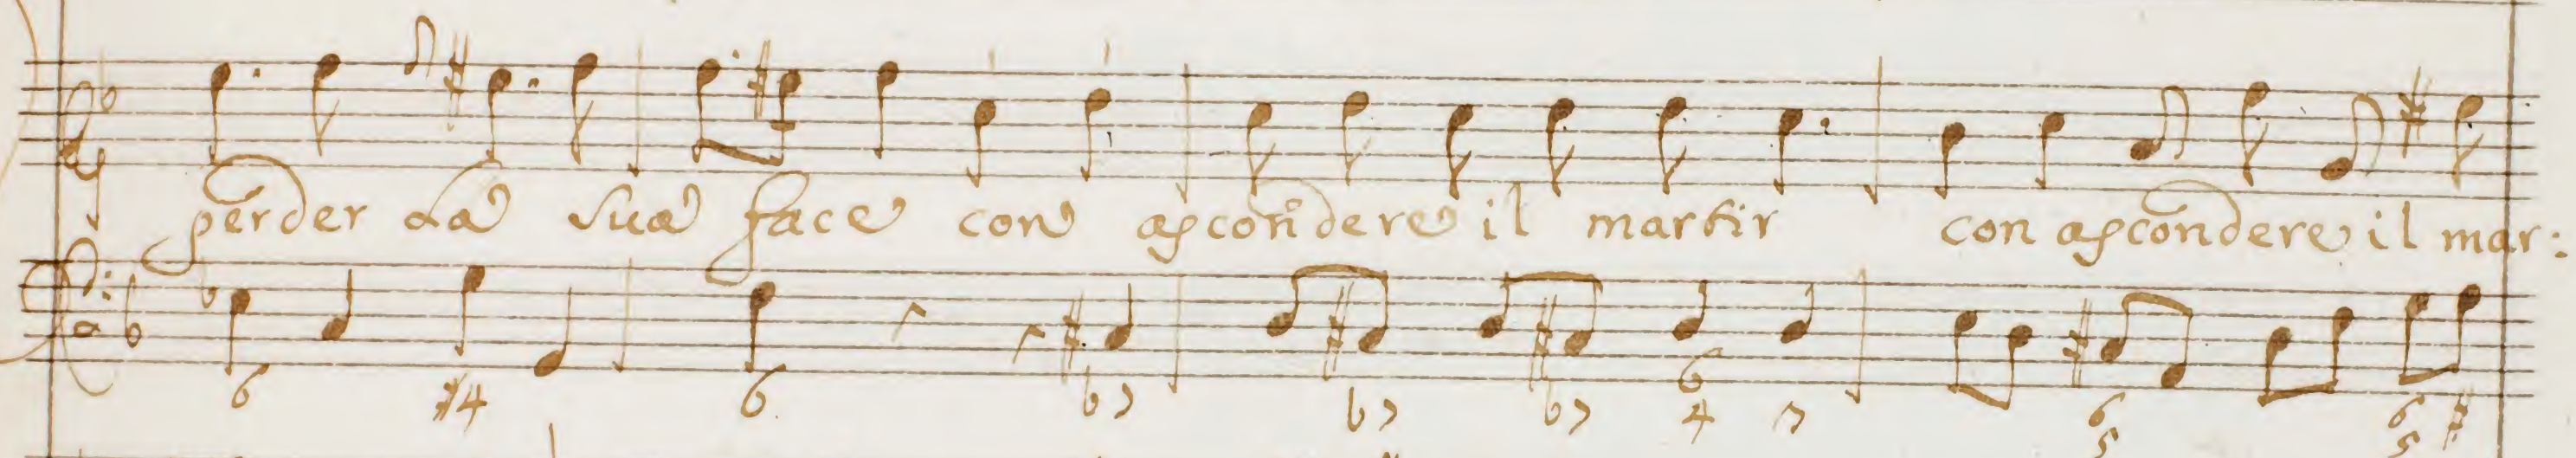 perder La sua face con ascondere il martir con ascondere il mar:
6 #4 6 b7 b7 b7 6 4 7 6 5 6 5 #